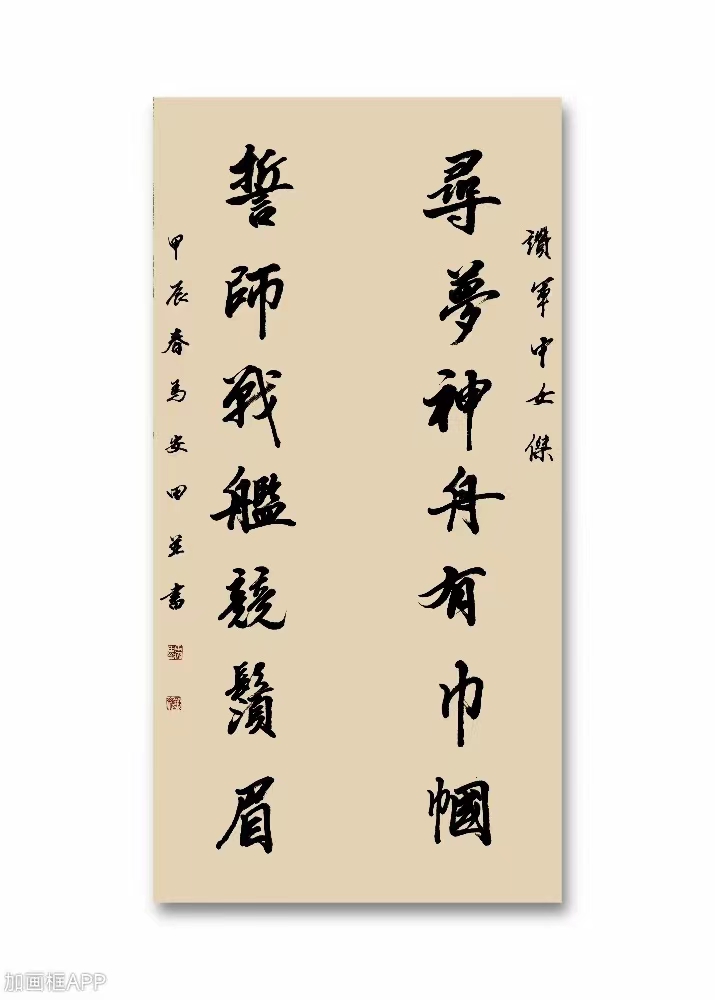 讚軍中女傑
尋夢神舟有巾幗
誓師戰艦競鬚眉
甲辰春為安田並書
加画框APP